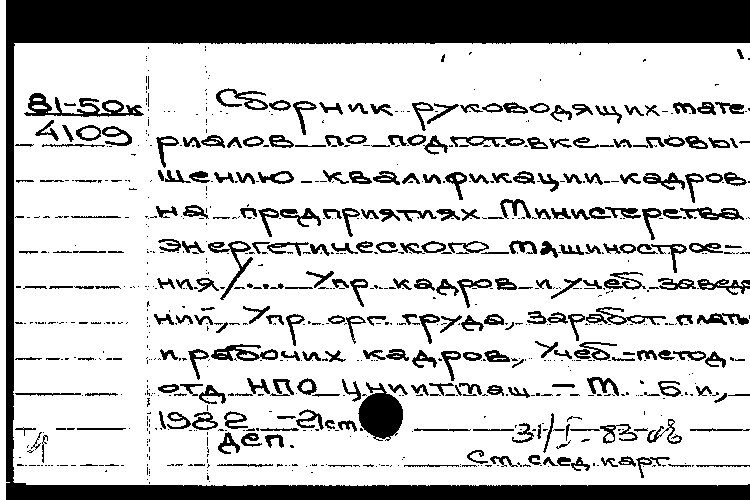 81-50к
4109
Сборник руководящих мате-
риалов по подготовке и повы-
шению квалификации кадров
на предприятиях Министерства
энергетического машинострое-
ния /... Упр. кадров и учеб. заведе
ний, Упр. орг. труда, заработ. платы
и рабочих кадров, Учеб.-метод.
отд НПО ЦНИИТмаш. – М. : Б.и.,
1982 – 21 cm
Деп.
31/I-83
См. след. карт.